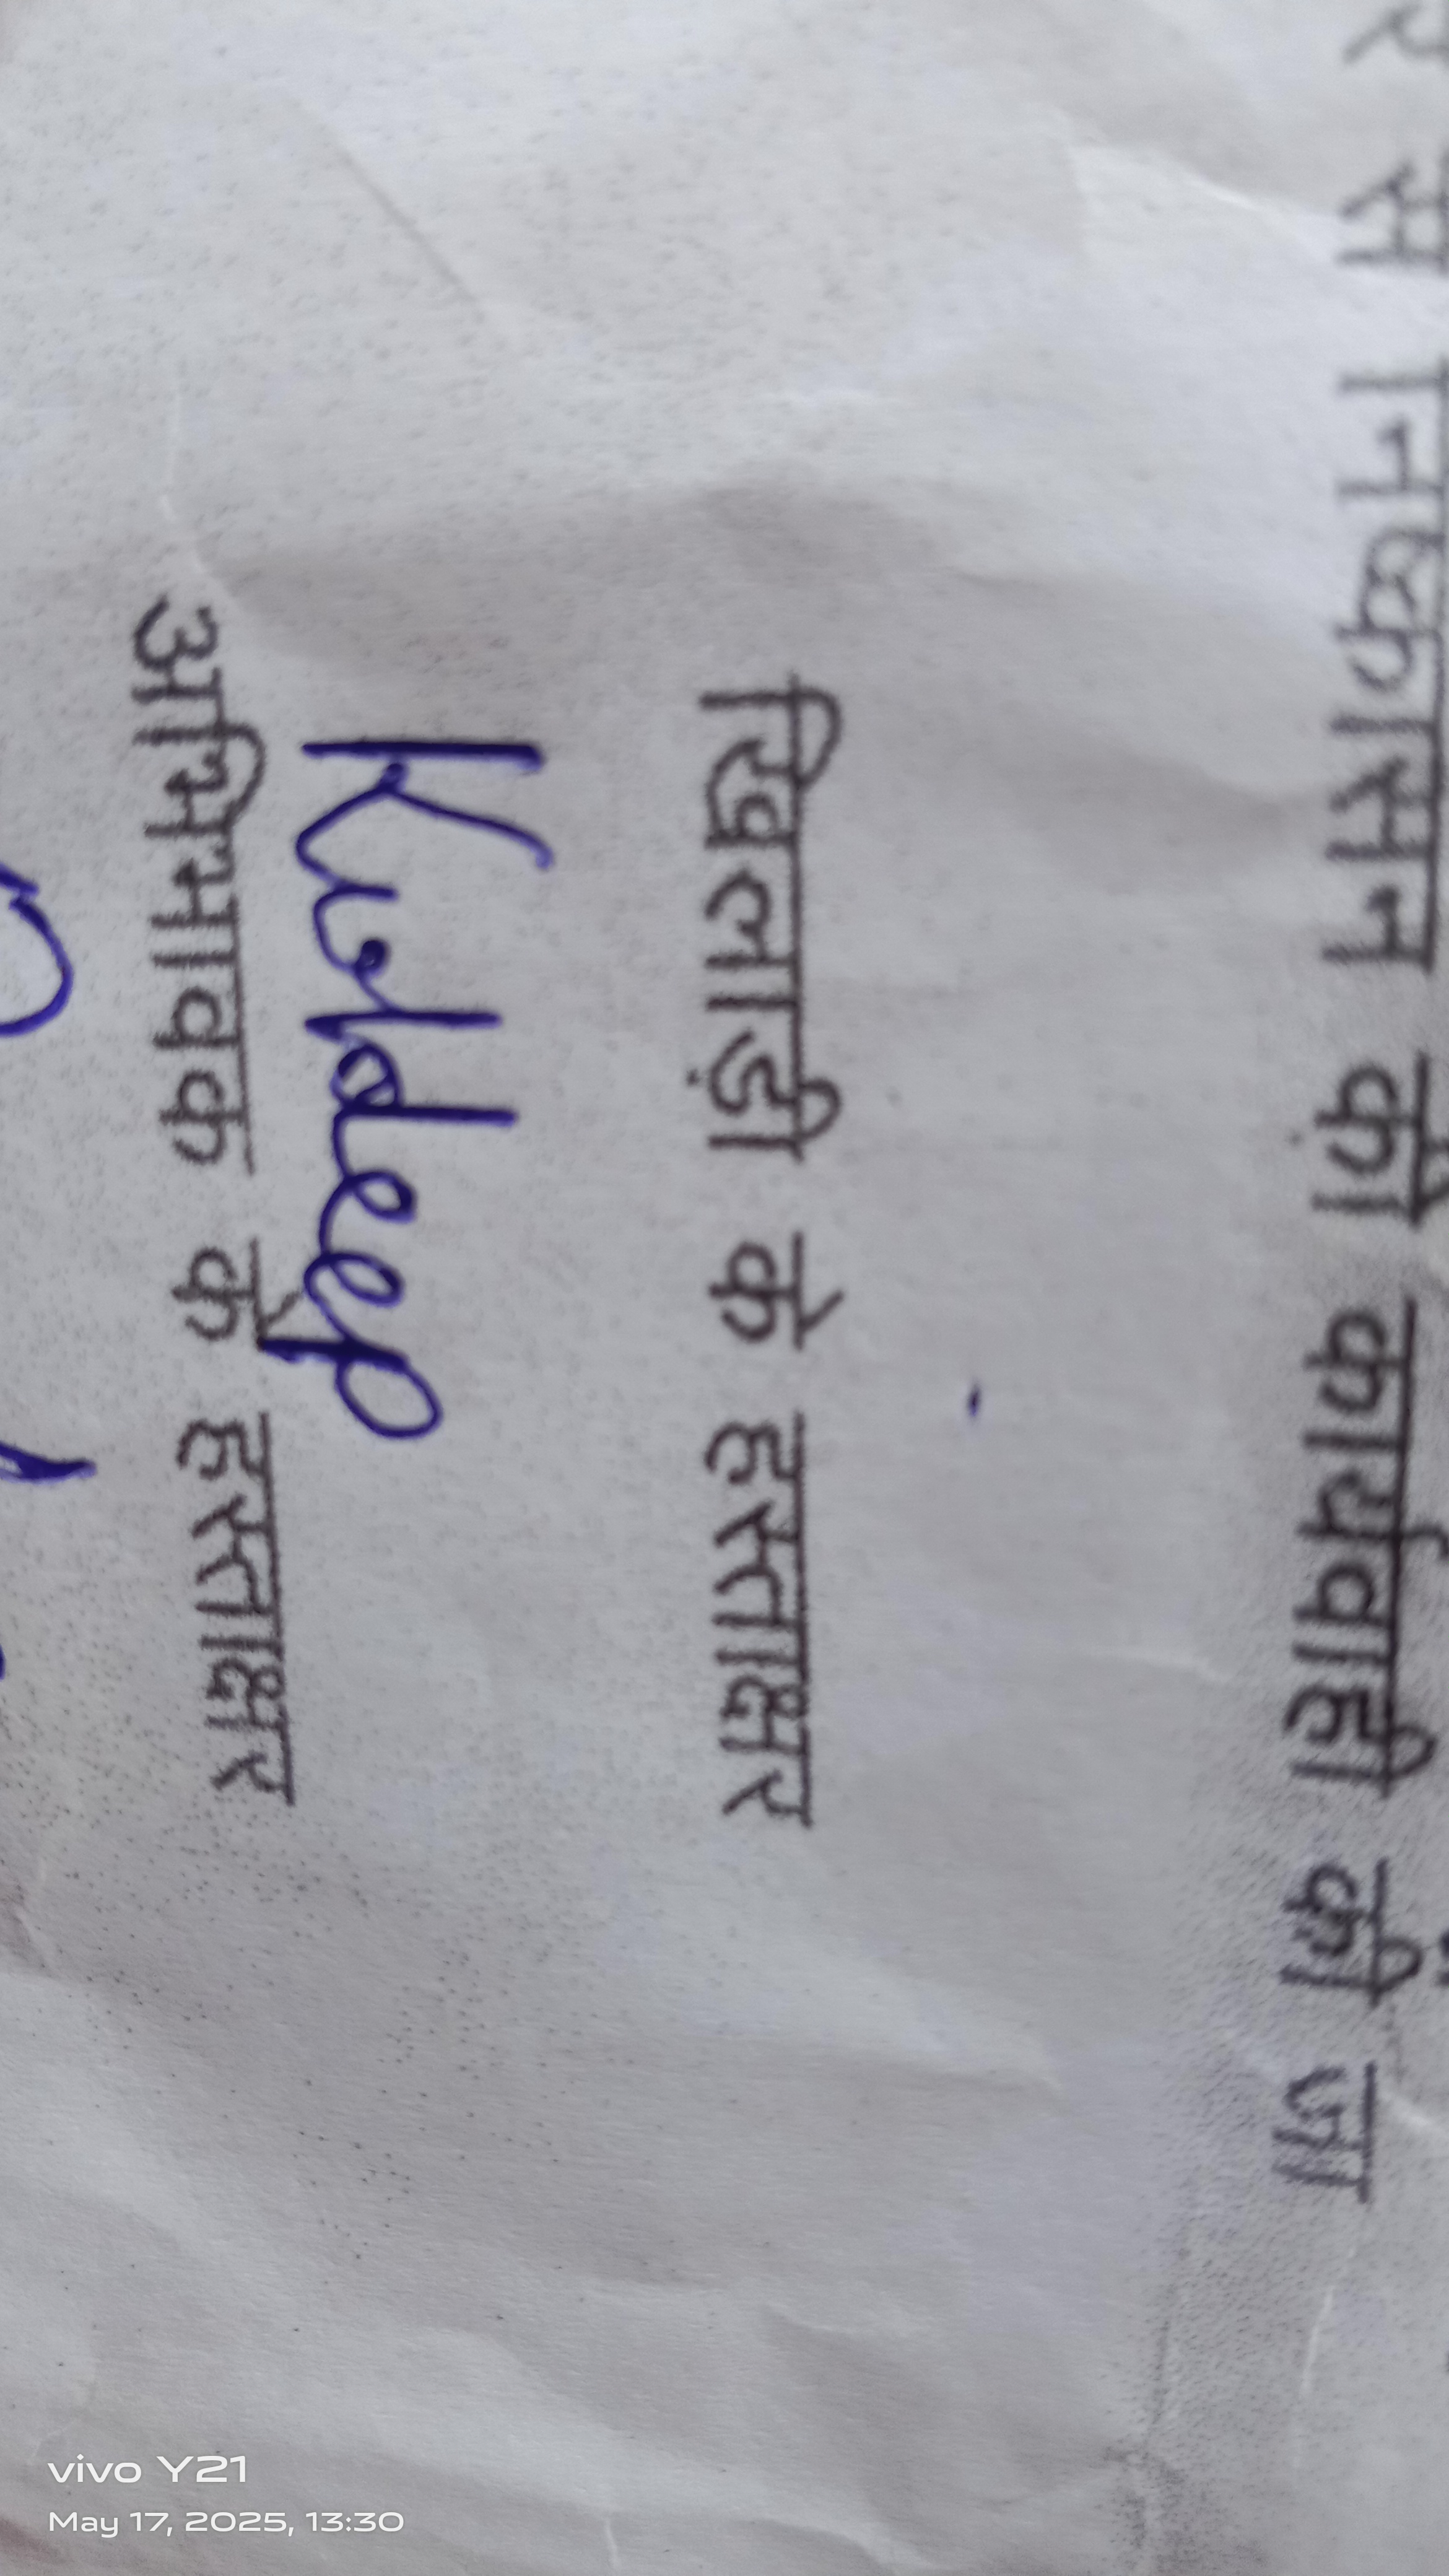 र से निष्कासन की कार्यवाही की जा
खिलाड़ी के हस्ताक्षर
Kuldeep
अभिभावक के हस्ताक्षर
vivo Y21
May 17, 2025, 13:30